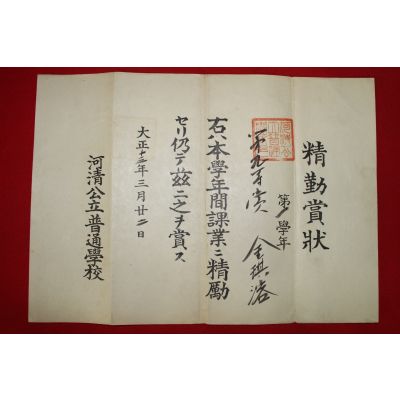 精勤賞狀
第 學年
金琪
右ハ本學年間課業ニ精勵
セリ仍テ茲ニ之ヲ賞ス
大正十三年三月廿二日
河清公立普通學校